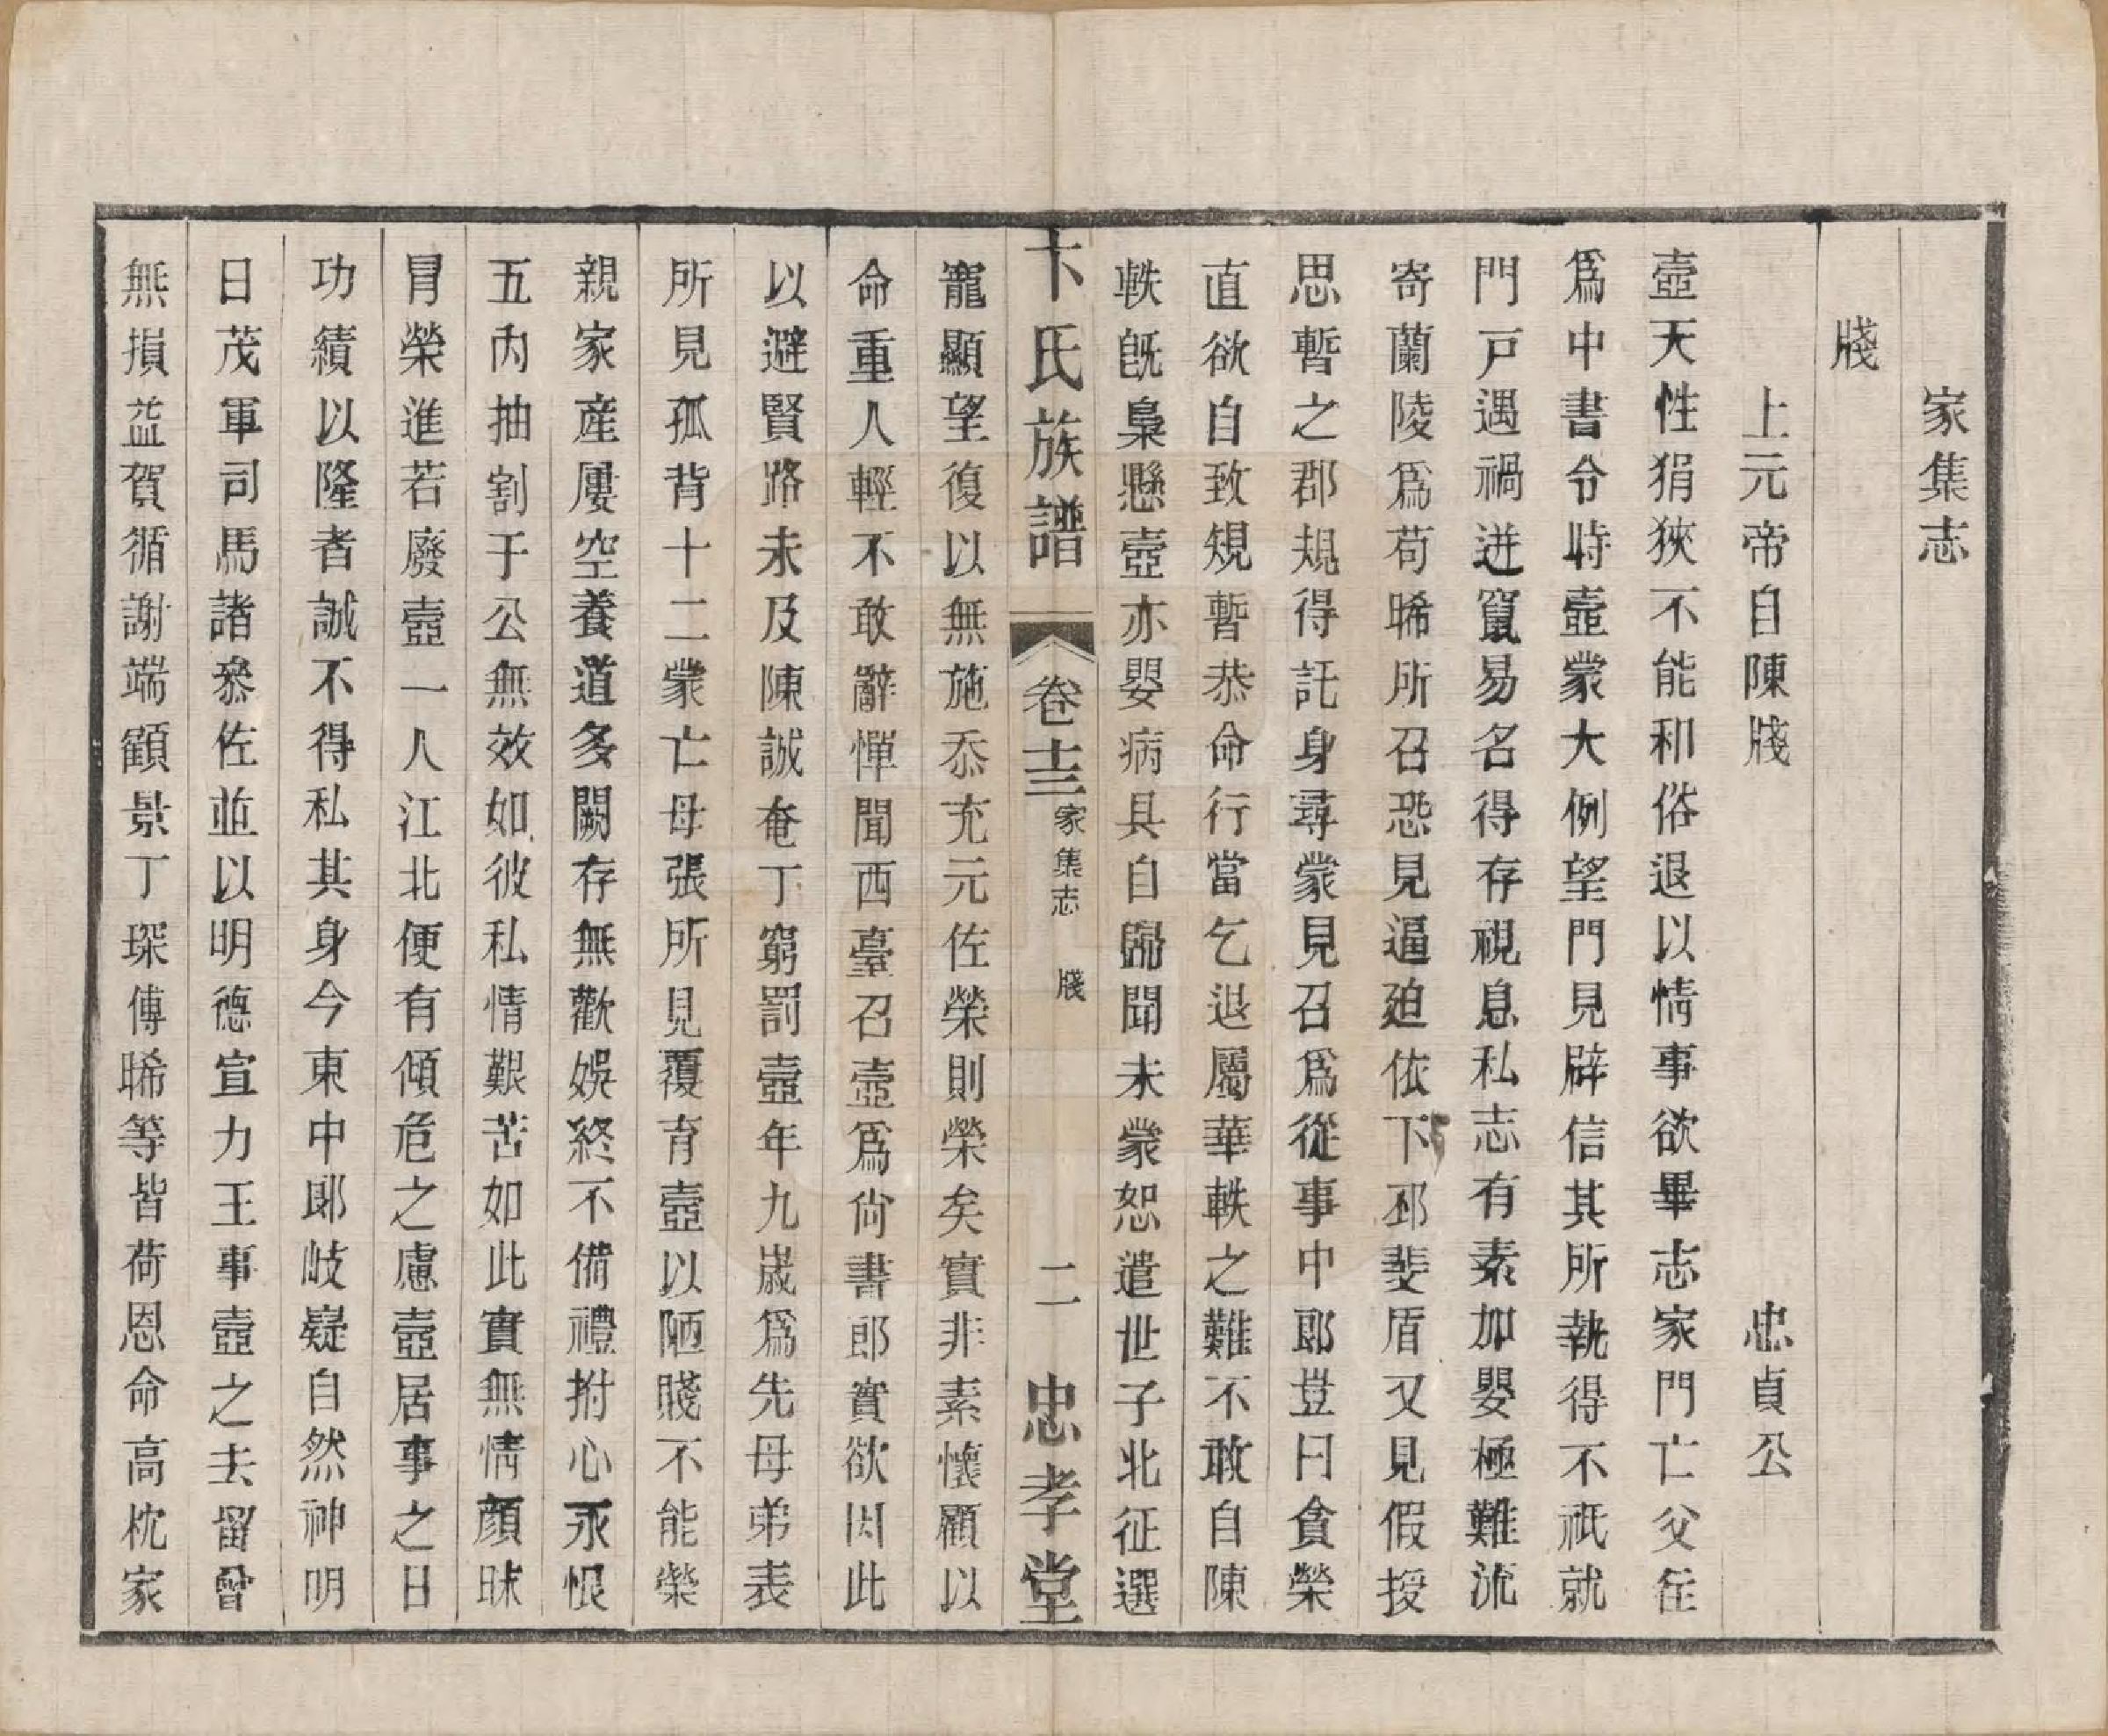 家集志
牋
上元帝自陳牋　忠貞公
壼天性狷狹不能和俗退以情事欲畢志家門亡父往
爲中書令時壼蒙大例望門見辟信其所執得不祇就
門戸遇禍迸竄易名得存視息私志有素加嬰極難流
寄蘭陵爲苟晞所召恐見逼迫依下邳裴盾又見假授
思暫之郡規得託身尋蒙見召爲從事中郎豈曰貪榮
直欲自致規暫恭命行當乞退屬華軼之難不敢自陳
軼旣梟懸壼亦嬰病具自歸聞未蒙恕遣世子北征選
卞氏族譜　卷十三　家集志　牋　二　忠孝堂
寵顯望復以無施忝充元佐榮則榮矣實非素懷顧以
命重人輕不敢辭憚聞西臺召壼爲尙書郎實欲因此
以避賢路未及陳誠奄丁窮罰壼年九歲爲先母弟表
所見孤背十二蒙亡母張所見覆育壼以陋賤不能榮
親家産屢空養道多闕存無歡娛終不備禮拊心永恨
五內抽割于公無效如彼私情艱苦如此實無情顏昧
冒榮進若廢壼一人江北便有傾危之慮壼居事之日
功績以隆者誠不得私其身今東中郎岐嶷自然神明
日茂軍司馬諸參佐並以明德宣力王事壼之去留曾
無損益賀循謝端顧景丁琛傅晞等皆荷恩命高枕家